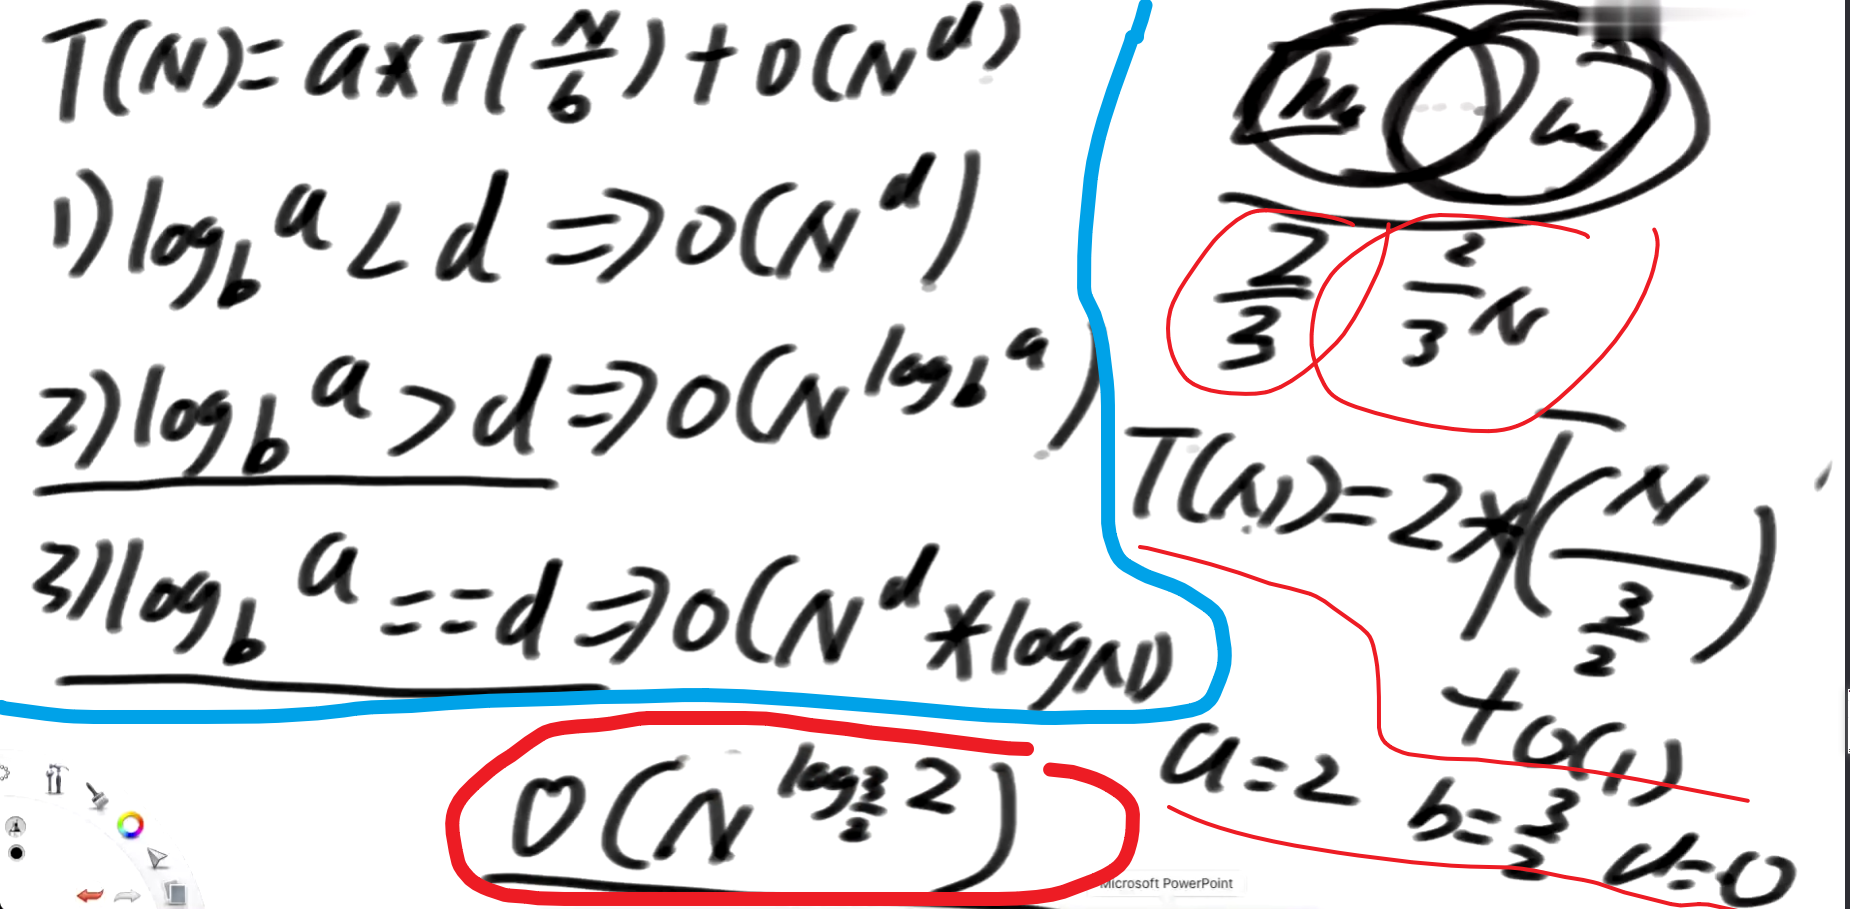 T(N)= a*T(N/b)+O(N^d)
1) log_b^a < d => O(N^d)
2) log_b^a > d => O(N^log_b^a)
3) log_b^a == d => O(N^d * logN)
O(N^log_{3/2} 2)
2/3 2/3 N
T(N)=2*T(N/(3/2))
+O(1)
a=2 b=3/2 d=0
Microsoft PowerPoint